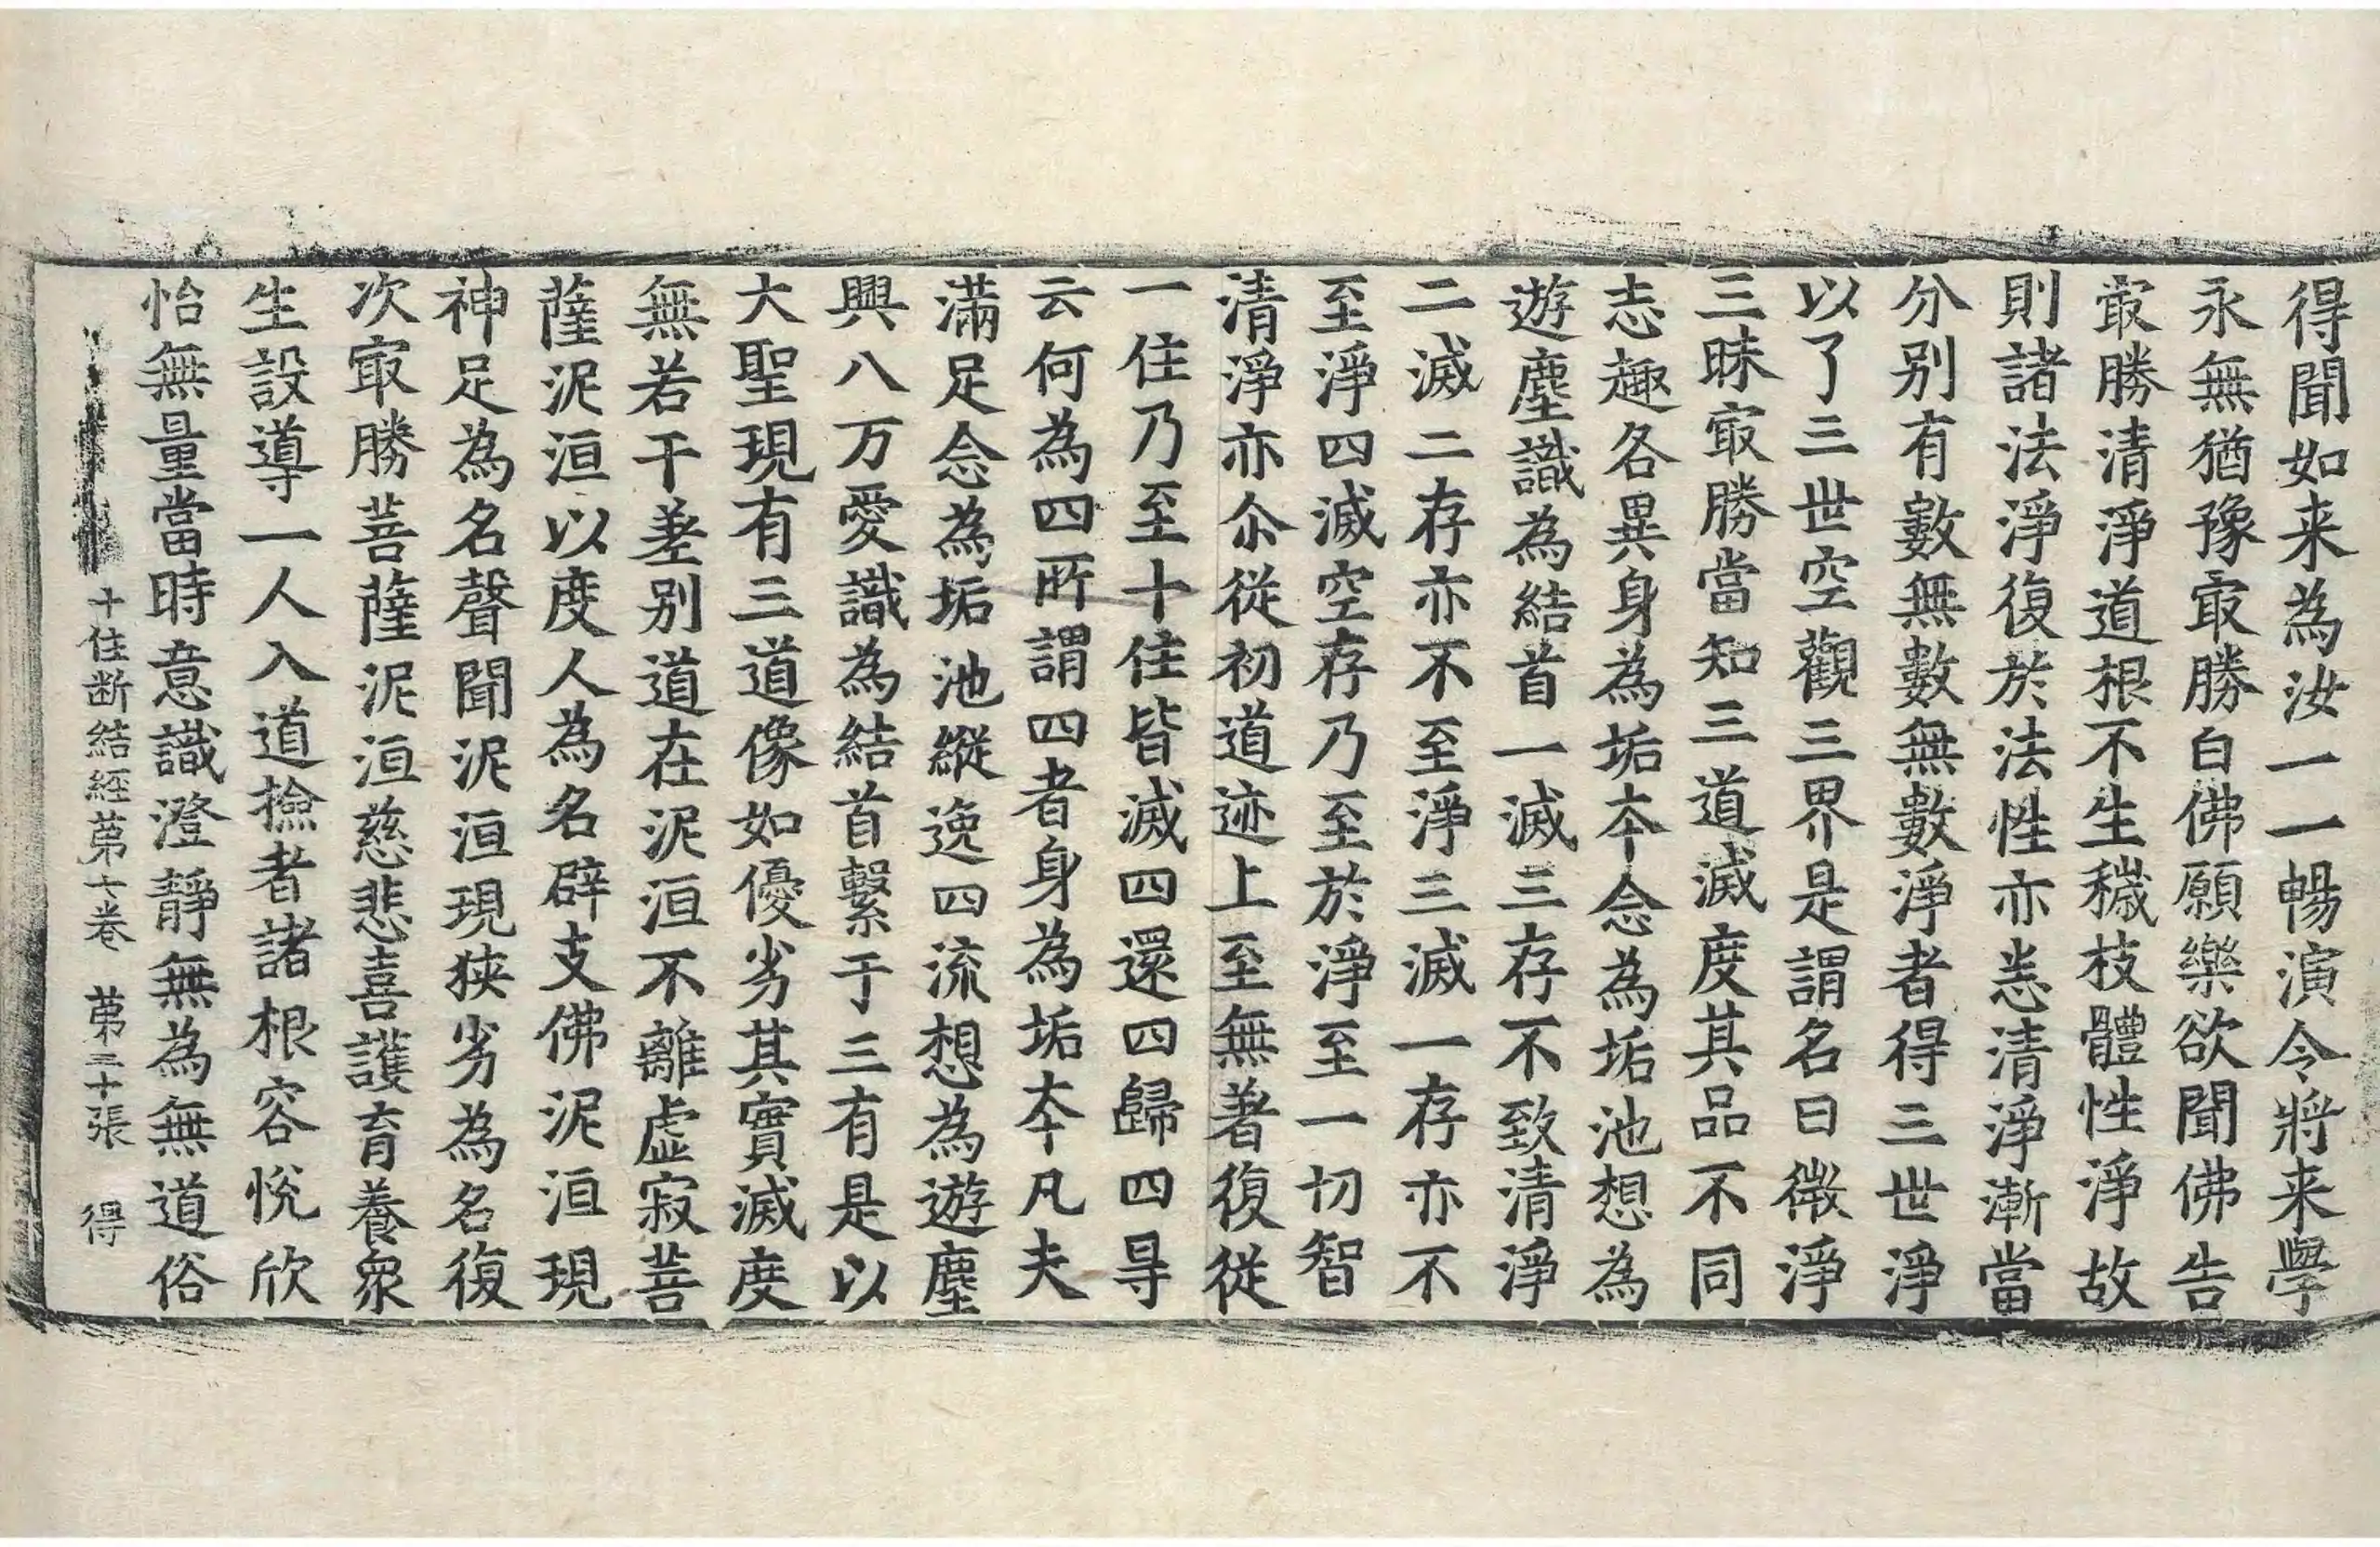 得聞如来為汝一一暢演令將来學
永無猶豫㝡勝白佛願樂欲聞佛告
㝡勝清淨道根不生穢枝體性淨故
則諸法淨復於法性亦恙清淨漸當
分别有數無數無數淨者得三世淨
以了三世空觀三界是謂名曰微淨
三昧㝡勝當知三道滅度其品不同
志趣各異身為垢夲念為垢池想為
遊塵識為結首一滅三存不致清淨
二滅二存亦不至淨三滅一存亦不
至淨四滅空存乃至於淨至一切智
清淨亦尒從初道迹上至無著復從
一住乃至十住皆滅四還四歸四㝵
云何為四所謂四者身為垢夲凡夫
滿足念為垢池縱逸四流想為遊塵
興八万愛識為結首繫于三有是以
大聖現有三道像如優劣其實滅度
無若干差别道在泥洹不離虚寂菩
薩泥洹以度人為名辟支佛泥洹現
神足為名聲聞泥洹現狹劣為名復
次㝡勝菩薩泥洹慈悲喜護育養衆
生設導一人入道撿者諸根容悅欣
怡無量當時意識澄靜無為無道俗
十住断結經苐七卷 苐三十張 得